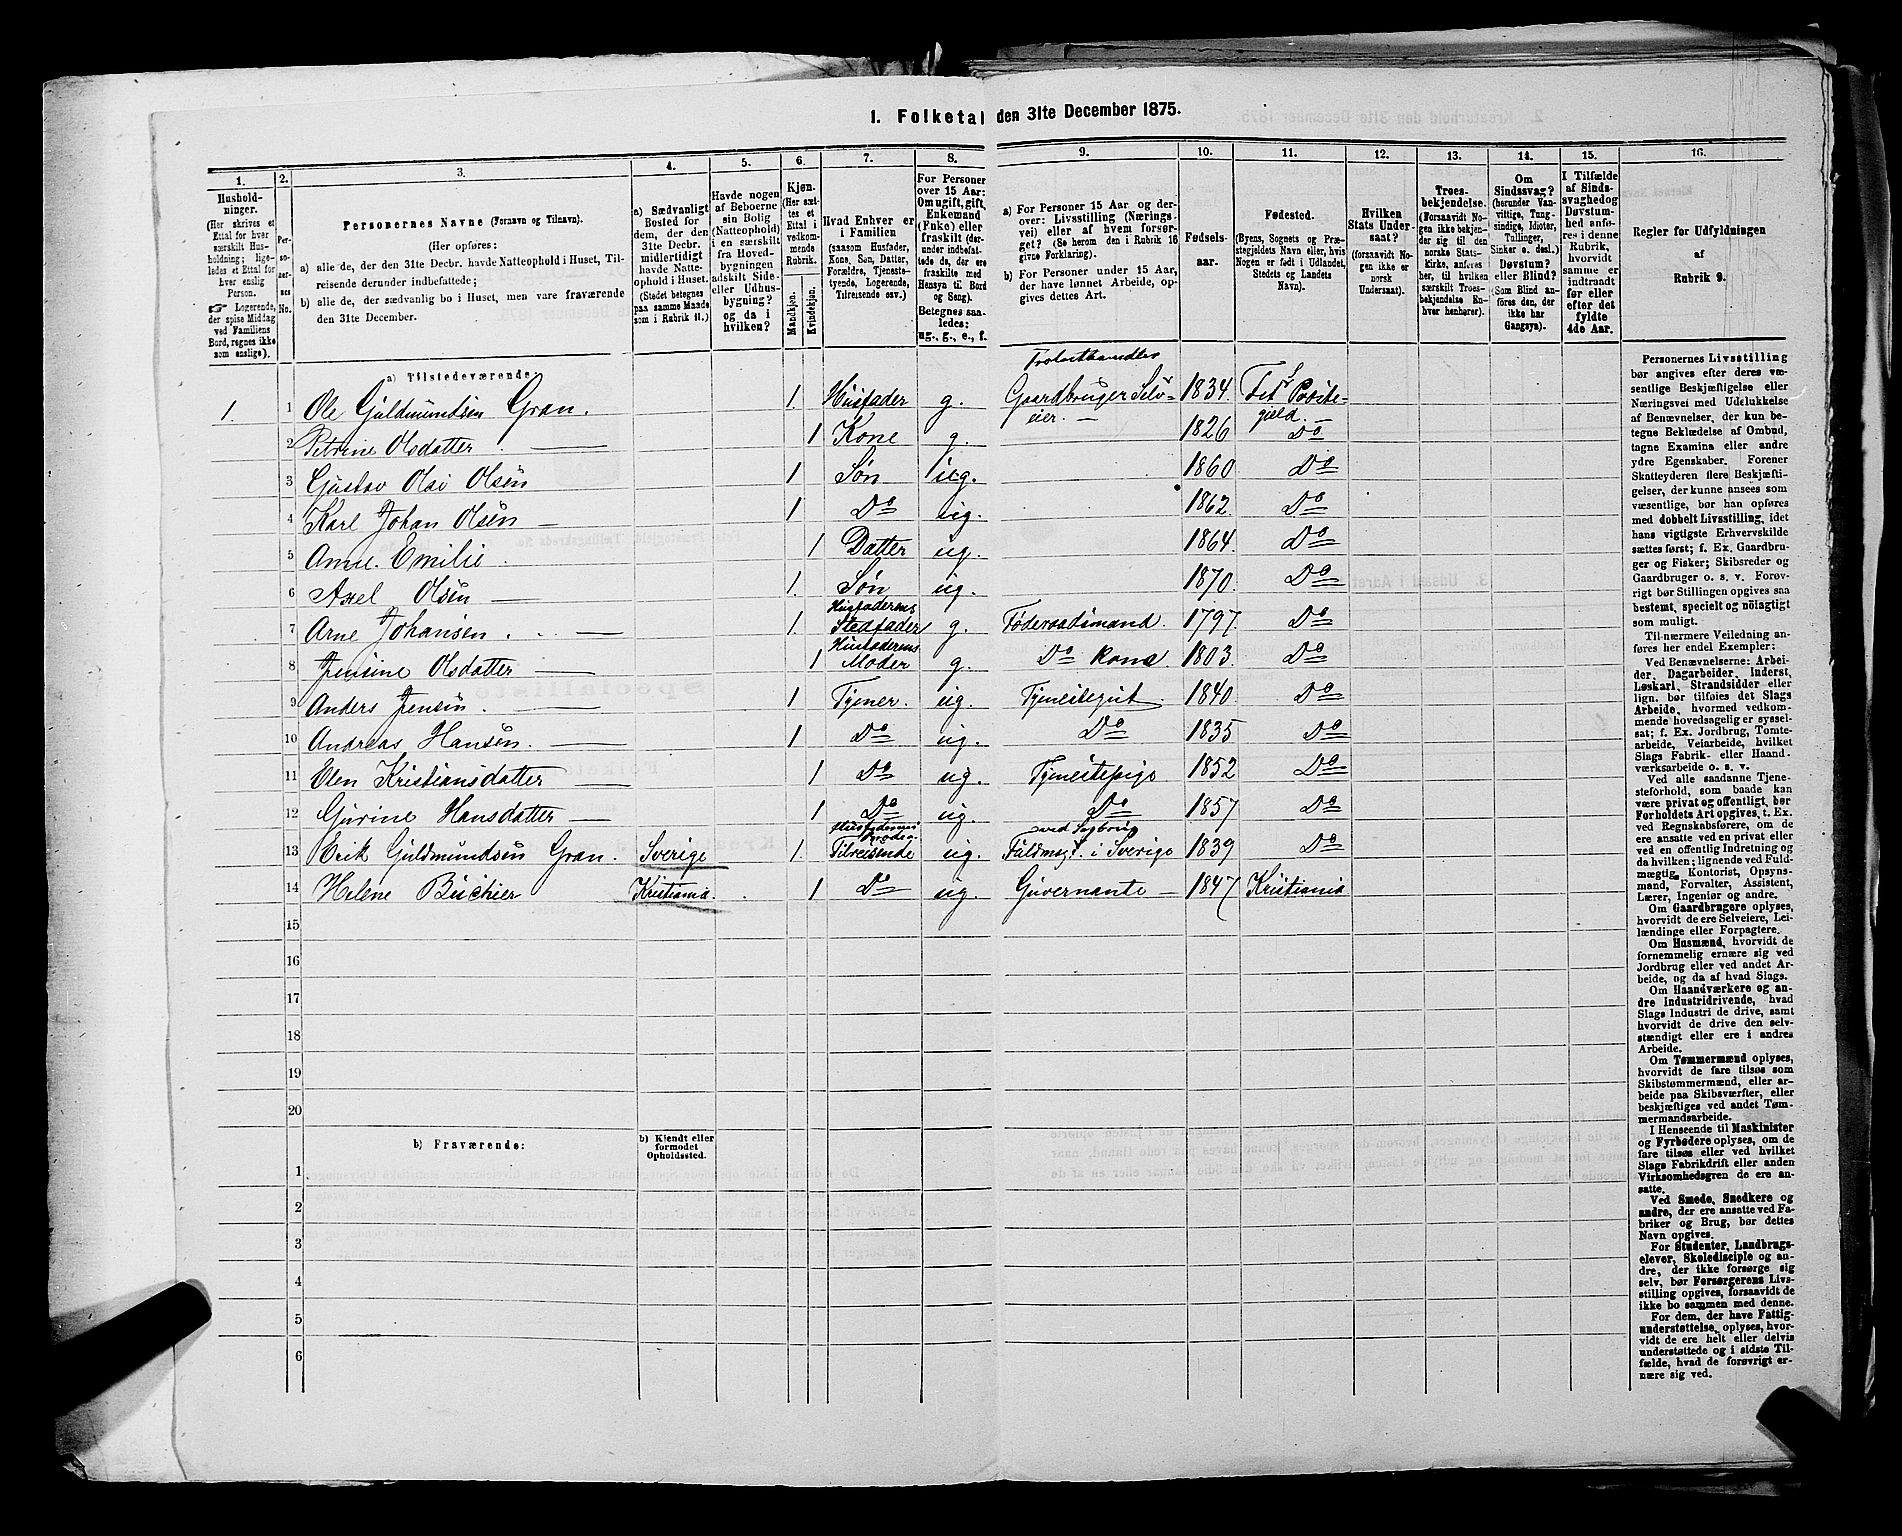 1. Folketal den 31te December 1875.
1.
Hushold-
ninger.
(Her skrives et
Ettal for hver
særskilt Hus-
holdning; lige-
ledes et Ettal for
hver enslig
Person.
☞ Logerende,
der spise Middag
ved Familiens
Bord, regnes ikke
som enslige).
2.
Per-
so-
ner-
nes
No.
3.
Personernes Navne (Fornavn og Tilnavn).
(Her opføres:
a) alle de, der den 31te Decbr. havde Natteophold i Huset, Til-
reisende derunder indbefattede;
b) alle de, der sædvanlig bo i Huset, men vare fraværende
den 31te December.
4.
a) Sædvanligt
Bosted for
dem, der den
31te Decbr.
midlertidigt
havde Natte-
ophold i Huset.
(Stedet betegnes
paa samme Maade
som i Rubrik 11.)
5.
Havde nogen
af Beboerne
sin Bolig
(Natteophold)
i en særskilt
fra Hoved-
bygningen
adskilt Side-
eller Udhus-
bygning?
og da i
hvilken?
6.
Kjøn.
(Her sæt-
tes et
Ettal i
vedkom-
mende
Rubrik.
Mandkjøn.
Kvindekjøn.
7.
Hvad Enhver er
i Familien
(saasom Husfader,
Kone, Søn, Datter,
Forældre, Tjeneste-
tyende, Logerende,
Tilreisende osv.)
8.
For Personer
over 15 Aar:
Om ugift, gift,
Enkemand
(Enke) eller
fraskilt (der-
under indbefat-
tede de, der ere
fraskilte med
Hensyn til Bord
og Seng).
Betegnes saa-
ledes:
ug., g., e., f.
9.
a) For Personer 15 Aar og der-
over: Livsstilling (Nærings-
vei) eller af hvem forsør-
get? (Se herom den i Rubrik 16
givne Forklaring).
b) For Personer under 15 Aar,
der have lønnet Arbeide, op-
gives dettes Art.
10.
Fødsels-
aar.
11.
Fødested.
(Byens, Sognets og Præ-
stegjeldets Navn eller, hvis
Nogen er født i Udlandet,
Stedets og Landets
Navn).
12.
Hvilken
Stats Under-
saat?
(forsaavidt No-
gen ikke er
norsk
Undersaat).
13.
Troes-
bekjendelse.
(Forsaavidt No-
gen ikke bekjen-
der sig til den
norske Stats-
Kirke, anføres
her, til hvilken
særskilt Troes-
bekjendelse En-
hver henhører).
14.
Om
Sindssvag?
(herunder Van-
vittige, Tung-
sindige, Idioter,
Tullinger,
Sinker o. desl.)
Døvstum?
eller Blind?
(Som Blind an-
føres den, der
ikke har
Gangsyn).
15.
I Tilfælde
af Sinds-
svaghed og
Døvstum-
hed anfø-
res i denne
Rubrik,
hvorvidt
samme er
indtraadt
før eller
efter det
fyldte
4de Aar.
16.
Regler for Udfyldningen
af
Rubrik 9.
a) Tilstedeværende:
1. 1 Ole Guldmundsen Gran. 1. Husfader g. Trelasthandler Gaardbruger Selv=eier. — 1834. Fets Præste-gjeld. —
2 Petrine Olsdatter — 1 Kone g. 1826 Do
3 Gustav Olai Olsen 1 Søn ug. 1860. Do
4 Karl Johan Olsen — 1 Do ug. 1862. Do
5 Anne Emilie 1 Datter ug. 1864. Do
6 Axel Olsen — 1. Søn ug. 1870. Do
7 Arne Johansen . — 1. Husfaderens Stedfader g. Føderaadsmand. 1797. Do
8 Jensine Olsdatter — 1 Husfaderens Moder g. Do Kone 1803. Do
9 Anders Jensen . — 1 Tjener. ug. Tjenestegut 1840. Do
10 Andreas Hansen. — 1 Do ug. Do 1835 Do
11 Elen Kristiansdatter — 1 Do ug. Tjenestepige 1852 Do
12 Gurine Hansdatter — 1 Do ug. Do 1857 Do
13 Erik Guldmundsen Gran. Sverige 1. Husfaderens Broder Tilreisende ug. Fuldmægt. ved Sagbrug i Sverige 1839 Do
14 Helene Buchier Kristiania. 1 Do ug. Guvernante — 1847 Kristiania
15
16
17
18
19
20
b) Fraværende:
b) Kjendt eller
formodet
Opholdssted.
1
2
3
4
5
6
Personernes Livsstilling
bør angives efter deres væ-
sentlige Beskjæftigelse eller
Næringsvei med Udelukkelse
af Benævnelser, der kun be-
tegne Beklædelse af Ombud,
tagne Examina eller andre
ydre Egenskaber. Forener
Skatteyderen flere Beskjæfti-
gelser, der kunne ansees som
væsentlige, bør han opføres
med dobbelt Livsstilling, idet
hans vigtigste Erhvervskilde
sættes først; f. Ex. Gaardbru-
ger og Fisker; Skibsreder og
Gaardbruger o. s. v. Forøv-
rigt bør Stillingen opgives saa
bestemt, specielt og nöiagtigt
som muligt.
Til nærmere Veiledning an-
føres her endel Exempler:
Ved Benævnelserne: Arbei-
der, Dagarbeider, Inderst,
Løskarl, Strandsidder eller
lign. bør tilføies det Slags
Arbeide, hvormed vedkom-
mende hovedsagelig er syssel-
sat; f. Ex. Jordbrug, Tomte-
arbeide, Veiarbeide, hvilket
Slags Fabrik- eller Haand-
værksarbeide o. s. v.
Ved alle saadanne Tjene-
steforhold, som baade kan
være privat og offentligt, bør
Forholdets Art opgives, t. Ex.
ved Regnskabsførere, om de
ere ansatte ved en privat eller
ved en offentlig Indretning og
da hvilken; lignende ved Fuld-
mægtig, Kontorist, Opsyns-
mand, Forvalter, Assistent,
Lærer, Ingeniør og andre.
Om Gaardbrugere oplyses,
hvorvidt de ere Selveiere, Lei-
lændinge eller Forpagtere.
Om Husmænd, hvorvidt de
fornemmelig ernære sig ved
Jordbrug eller ved andet Ar-
beide, og da af hvad Slags.
Om Haandværkere og an-
dre Industridrivende, hvad
Slags Industri de drive, samt
hvorvidt de drive den selv-
stændigt eller ere i andres
Arbeide.
Om Tømmermænd oplyses,
hvorvidt de fare tilsøs som
Skibstømmermænd, eller ar-
beide paa Skibsværfter, eller
beskjæftiges ved andet Tøm-
mermandsarbeide.
I Henseende til Maskinister
og Fyrbødere oplyses, om de
fare tilsøs eller ved hvilket
Slags Fabrikdrift eller anden
Virksomhedsgren de ere an-
satte.
Ved Smede, Snedkere og
andre, der ere ansatte ved Fa-
briker og Brug, bør dettes
Navn opgives.
For Studenter, Landbrugs-
elever, Skoledisciple og an-
dre, der ikke forsørge sig
selv, bør Forsørgerens Livs-
stilling opgives, forsaavidt de
ikke bo sammen med denne.
For dem, der have Fattig-
understøttelse, oplyses, hvor-
vidt de ere helt eller delvis
understøttede og i sidste Til-
fælde, hvad de forøvrigt er-
nære sig ved.